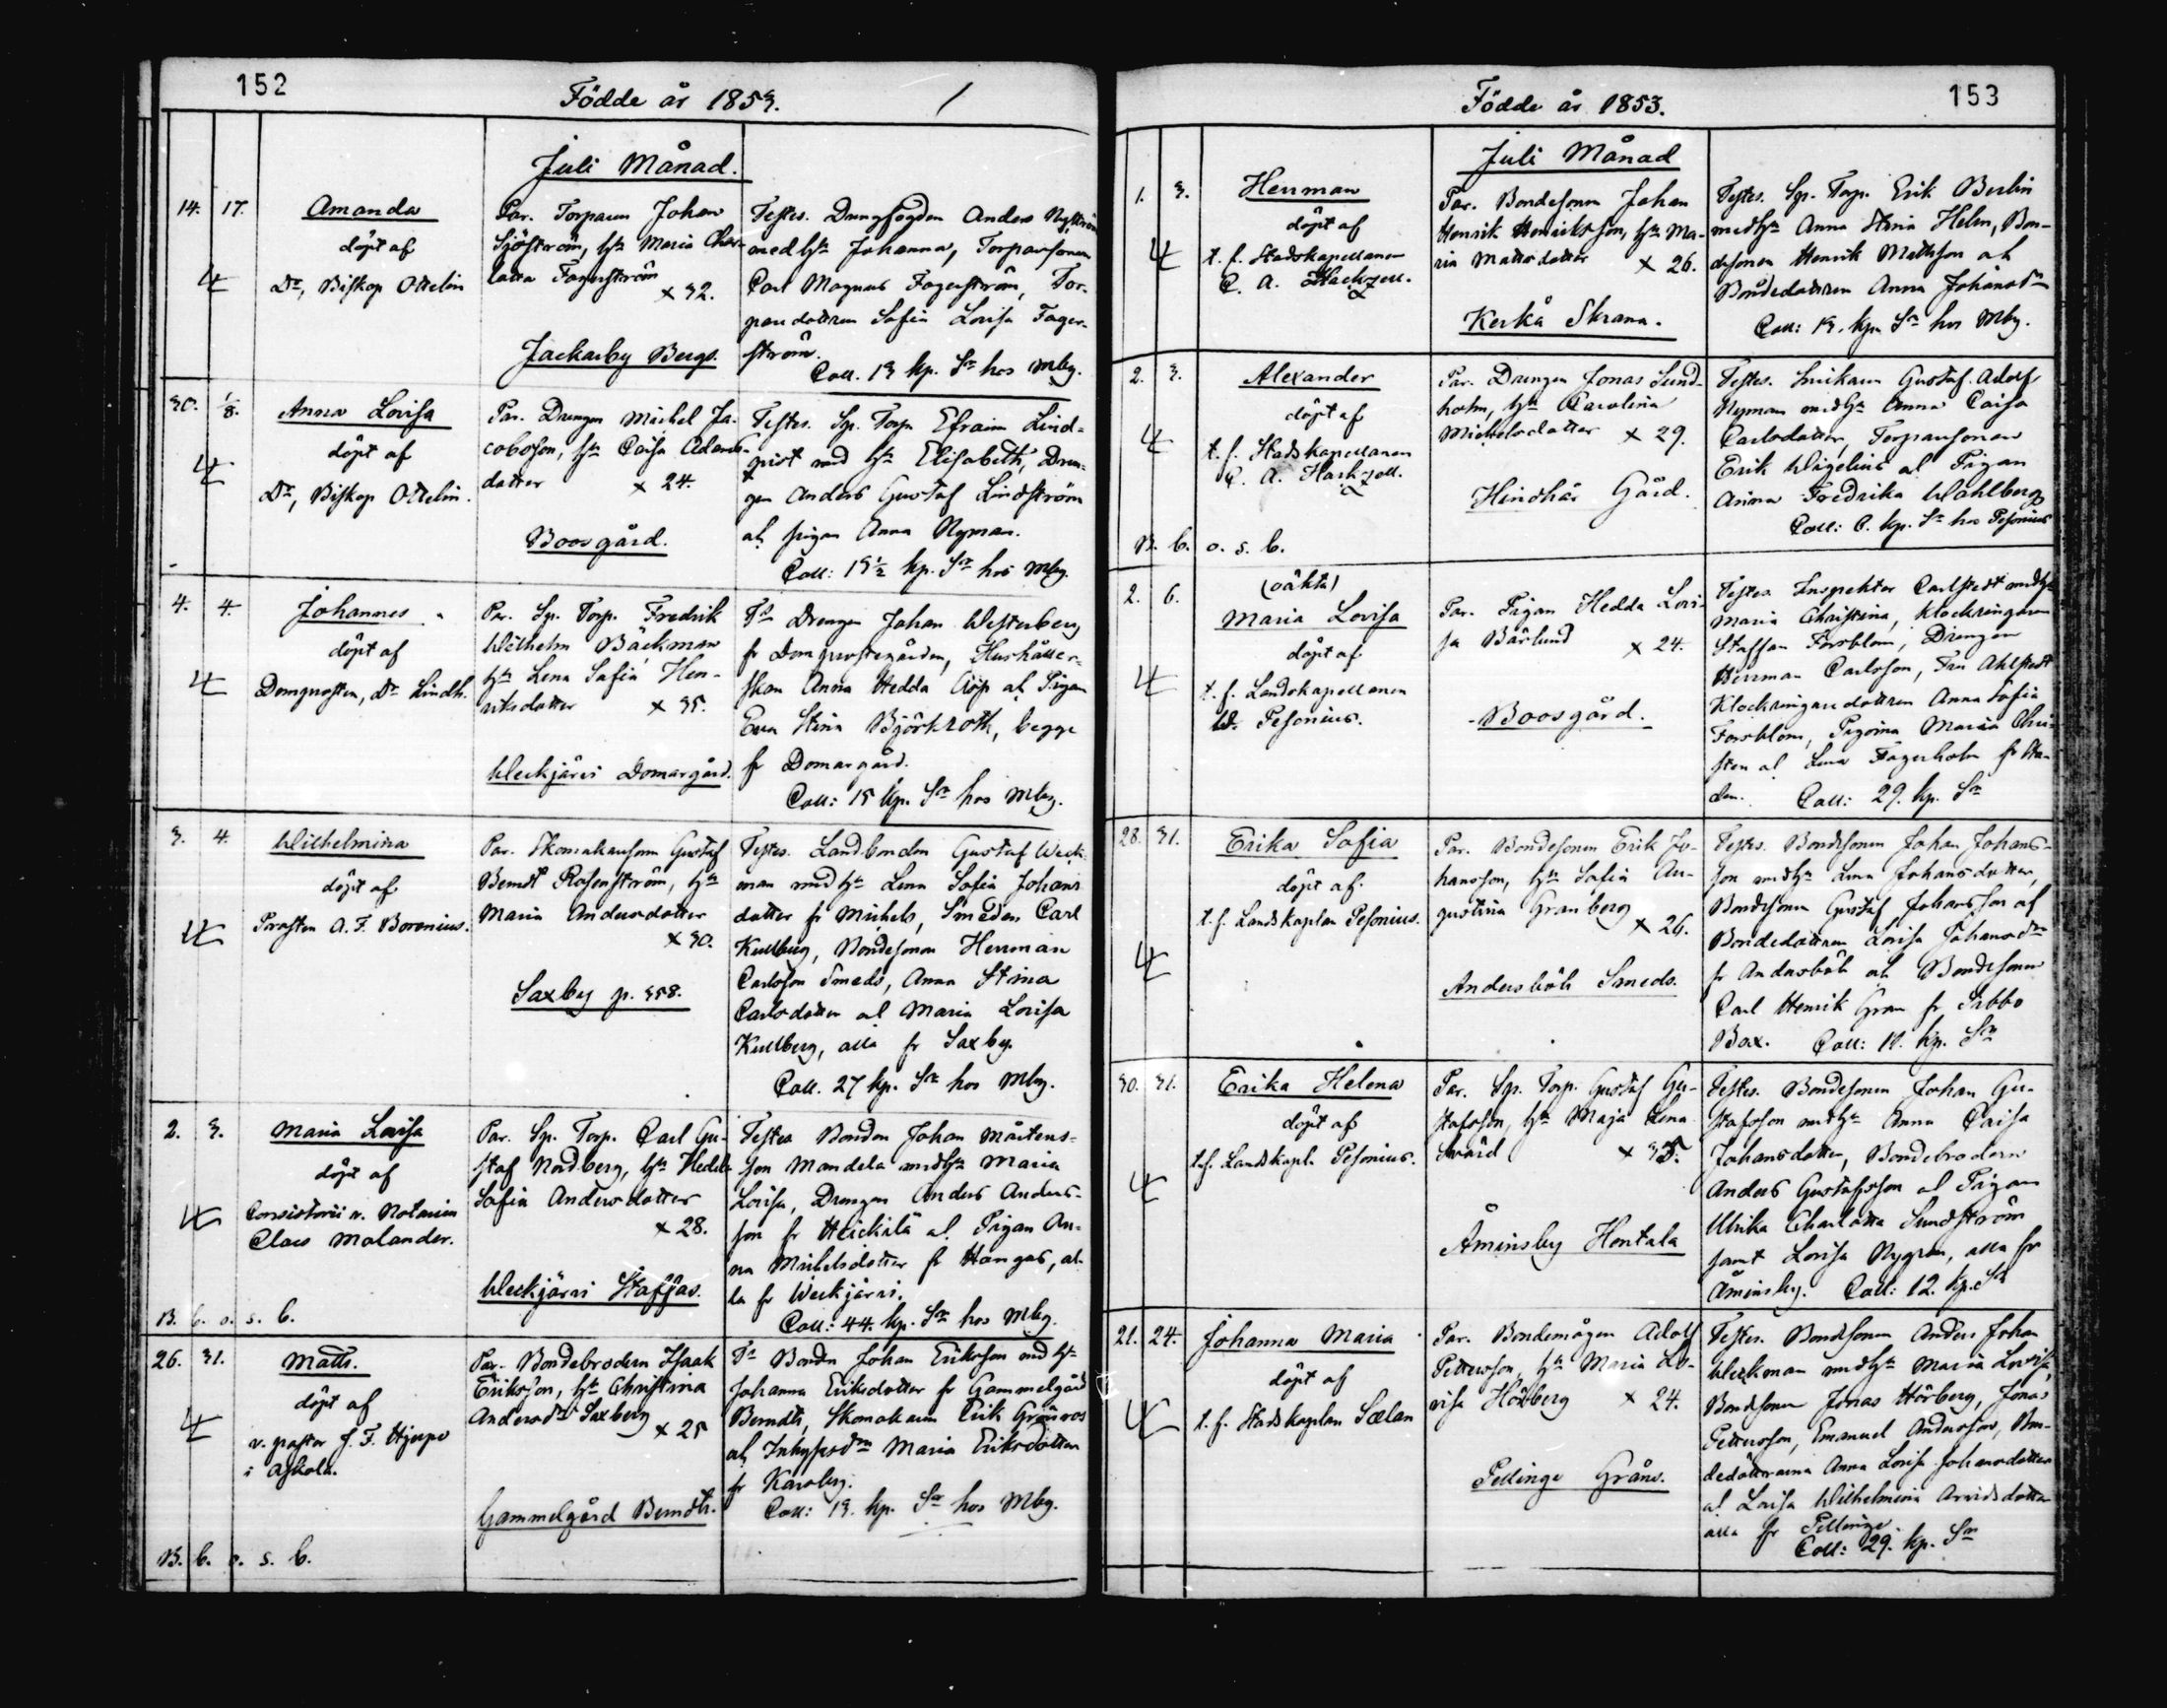 152
Födde år 1853.
Juli Månad.
14. 17.
Amanda
döpt af
Dr, Biskop Ottelin
Par. Torparen Johan
Sjöström, hu Maria Char-
lotta Fagerström
x 32.
Jackarby Bergs.
Testes. Drengfogden Anders Nyström
med hu Johanna, Torparsonen
Carl Magnus Fagerström, Tor-
paredottren Sofia Lovisa Fager-
ström.
Coll. 13 kp. Sr hos Mbg.
30. 1/8.
Anna Lovisa
döpt af
Dr, Biskop Ottelin.
Par. Drengen Michel Ja-
cobsson, hu Caisa Adams-
dotter x 24.
Boosgård.
Testes. Sp. Torp. Efraim Lind-
qvist med hu Elisabeth, Dren-
gen Anders Gustaf Lindström
och pigan Anna Nyman.
Coll: 13 1/2 kp. Sr hos Mbg.
4. 4.
Johannes
döpt af
Domprosten, Dr Lindh.
Par. Sp. Torp. Fredrik
Wilhelm Bäckman
hu Lena Sofia Hen-
riksdotter x 35.
Weckjärvi Domargård.
Ts Drengen Johan Westerberg
fr Domprostegården, Hushåller-
skan Anna Hedda Asp och Pigan
Eva Stina Björkroth, begge
fr Domargård.
Coll: 15 kp. Sr hos Mbg.
3. 4.
Wilhelmina
döpt af
Prosten A. F. Borenius.
Par. Skomakarsonen Gustaf
Berndt Rosenström, hu
Maria Andersdotter
x 30.
Saxby p. 358.
Testes. Landbonden Gustaf Weck-
man med hu Lena Sofia Johans
dotter fr Michels, Smeden Carl
Kullberg, Bondesonen Herrman
Carlsson Smeds, Anna Stina
Carlsdotter och Maria Lovisa
Kullberg, alla fr Saxby.
Coll. 27 kp. Sr hos Mbg.
2. 3.
Maria Lovisa
döpt af
Consistorii v. Notarien
Claes Molander.
Par. Sp. Torp. Carl Gu-
staf Nordberg, hu Hedda
Sofia Andersdotter
x 28.
Weckjärvi Staffas.
Testes Bonden Johan Mårtens-
son Mandela med hu Maria
Lovisa, Drengen Anders Anders-
son fr Heickilä och Pigan An-
na Michelsdotter fr Hangas, al-
la fr Weckjärvi.
Coll: 44. kp. Sr hos Mbg.
B. b. o. s. b.
26. 31.
Matts.
döpt af
v. pastor J. F. Hjerpe
i Askola.
Par. Bondebrodern Isaak
Eriksson, hu Christina
Andersdr Saxberg x 25
Gammelgård Berndts.
Ts Bonden Johan Eriksson med hu
Johanna Eriksdotter fr Gammelgård
Berndts, Skomakaren Erik Grönroos
och Inhysesdrn Maria Eriksdotter
fr Karsby.
Coll: 13. kp. Sr hos Mbg.
B. b. o. s. b.
153
Födde år 1853.
Juli Månad
1. 3.
Herrman
döpt af
t. f. Stadskapellanen
C. A. Hackzell.
Par. Bondesonen Johan
Henrik Henriksson, hu Ma-
ria Mattsdotter x 26.
Kerkå Skrana.
Testes. Sp. Torp. Erik Berlin
med hu Anna Stina Helen, Bon-
desonen Henrik Mattsson och
Bondedottren Anna Johansdr
Coll: 13. kp. Sr hos Mbg.
2. 3.
Alexander
döpt af
t. f. Stadskapellanen
C. A. Hackzell.
Par. Drengen Jonas Lund-
holm, hu Carolina
Michelsdotter x 29.
Hindhår Gård.
Testes. Snickaren Gustaf Adolf
Nyman med hu Anna Caisa
Carlsdotter, Torparsonen
Erik Wigelius och Pigan
Anna Fredrika Wahlberg
Coll: 6. kp. Sr hos Pesonius
B. b. o. s. b.
2. 6.
(oäkta)
Maria Lovisa
döpt af
t. f. Landskapellanen
W. Pesonius.
Par. Pigan Hedda Lovi-
sa Bärlund x 24.
Boosgård.
Testes. Inspektor Carlstedt med hu
Maria Christina, Klockringaren
Staffan Forsblom, Drengen
Herrman Carlsson, Fru Ahlstedt
Klockringaredottren Anna Sofia
Forsblom, Pigorna Maria Chri-
sten och Lena Fagerholm fr Sta-
den. Coll: 29. kp. Sr
28. 31.
Erika Sofia
döpt af
t. f. Landskaplan Pesonius.
Par. Bondesonen Erik Jo-
hansson, hu Sofia Au-
gustina Granberg
x 26.
Andersböle Smeds.
Testes. Bondesonen Johan Johans-
son med hu Lena Johansdotter,
Bondesonen Gustaf Johansson och
Bondedottren Lovisa Johansdr
fr Andersböle och Bondesonen
Carl Henrik Gran fr
Box. Coll: 18. kp. Sr
30. 31.
Erika Helena
döpt af
t. f. Landskapl. Pesonius.
Par. Sp. Torp. Gustaf Gu-
stafsson, hu Maja Lena
Svärd x 35.
Åminsby Hentala
Testes. Bondesonen Johan Gu-
stafsson med hu Anna Caisa
Johansdotter, Bondebrodern
Anders Gustafsson och Pigan
Ulrika Charlotta Sundström
samt Lovisa Nygren, alla fr
Åminsby. Coll: 12. kp. Sr
21. 24.
Johanna Maria
döpt af
t. f. Stadskaplan Sælan
Par. Bondemågen Adolf
Pettersson, hu Maria Lo-
visa Hörberg x 24.
Pellinge Gräns.
Testes. Bondesonen Anders Johan
Weckman med hu Maria Lovisa,
Bondesonen Jonas Hörberg, Jonas
Pettersson, Emanuel Andersson, Bon-
dedöttrarna Anna Lovisa Johansdotter
och Lovisa Wilhelmina Arvidsdotter
alla fr Pellinge.
Coll: 29. kp. Sr